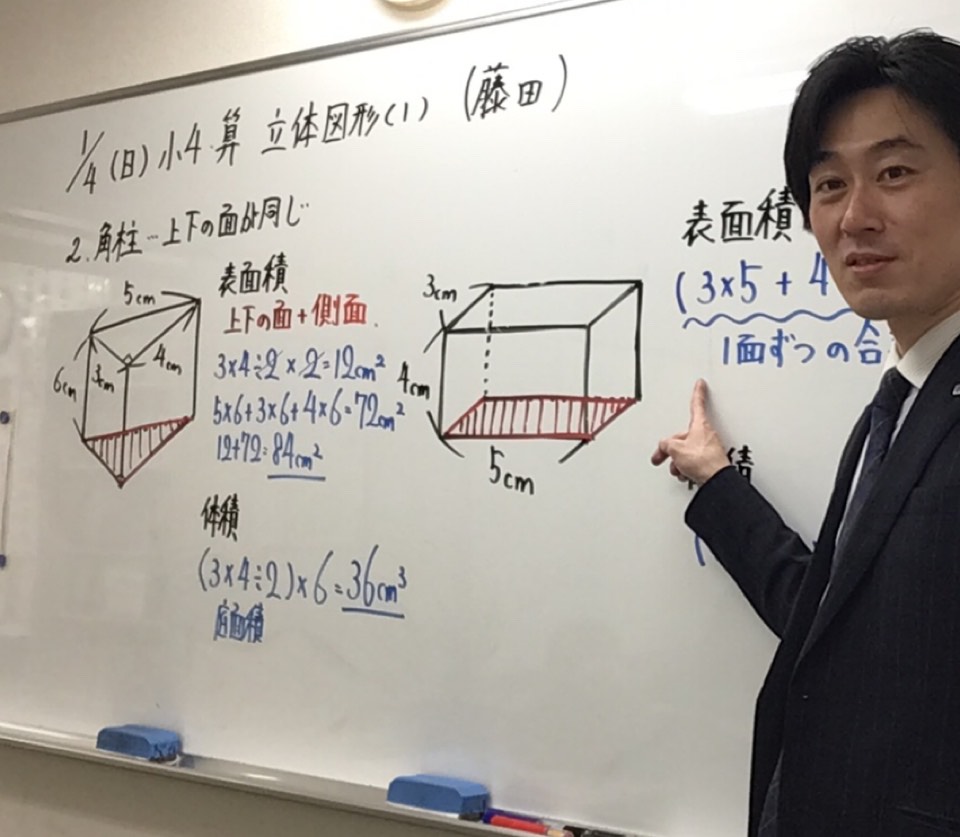 1/4(日)小4.算 立体図形(1) (藤田)
2.角柱…上下の面が同じ
5cm
6cm
3cm
4cm
表面積
上下の面+側面.
3×4÷2×2=12cm²
5×6+3×6+4×6=72cm²
12+72=84cm²
体積
(3×4÷2)×6=36cm³
底面積
3cm
4cm
5cm
表面積
(3×5+4
1面ずつの合
積
(